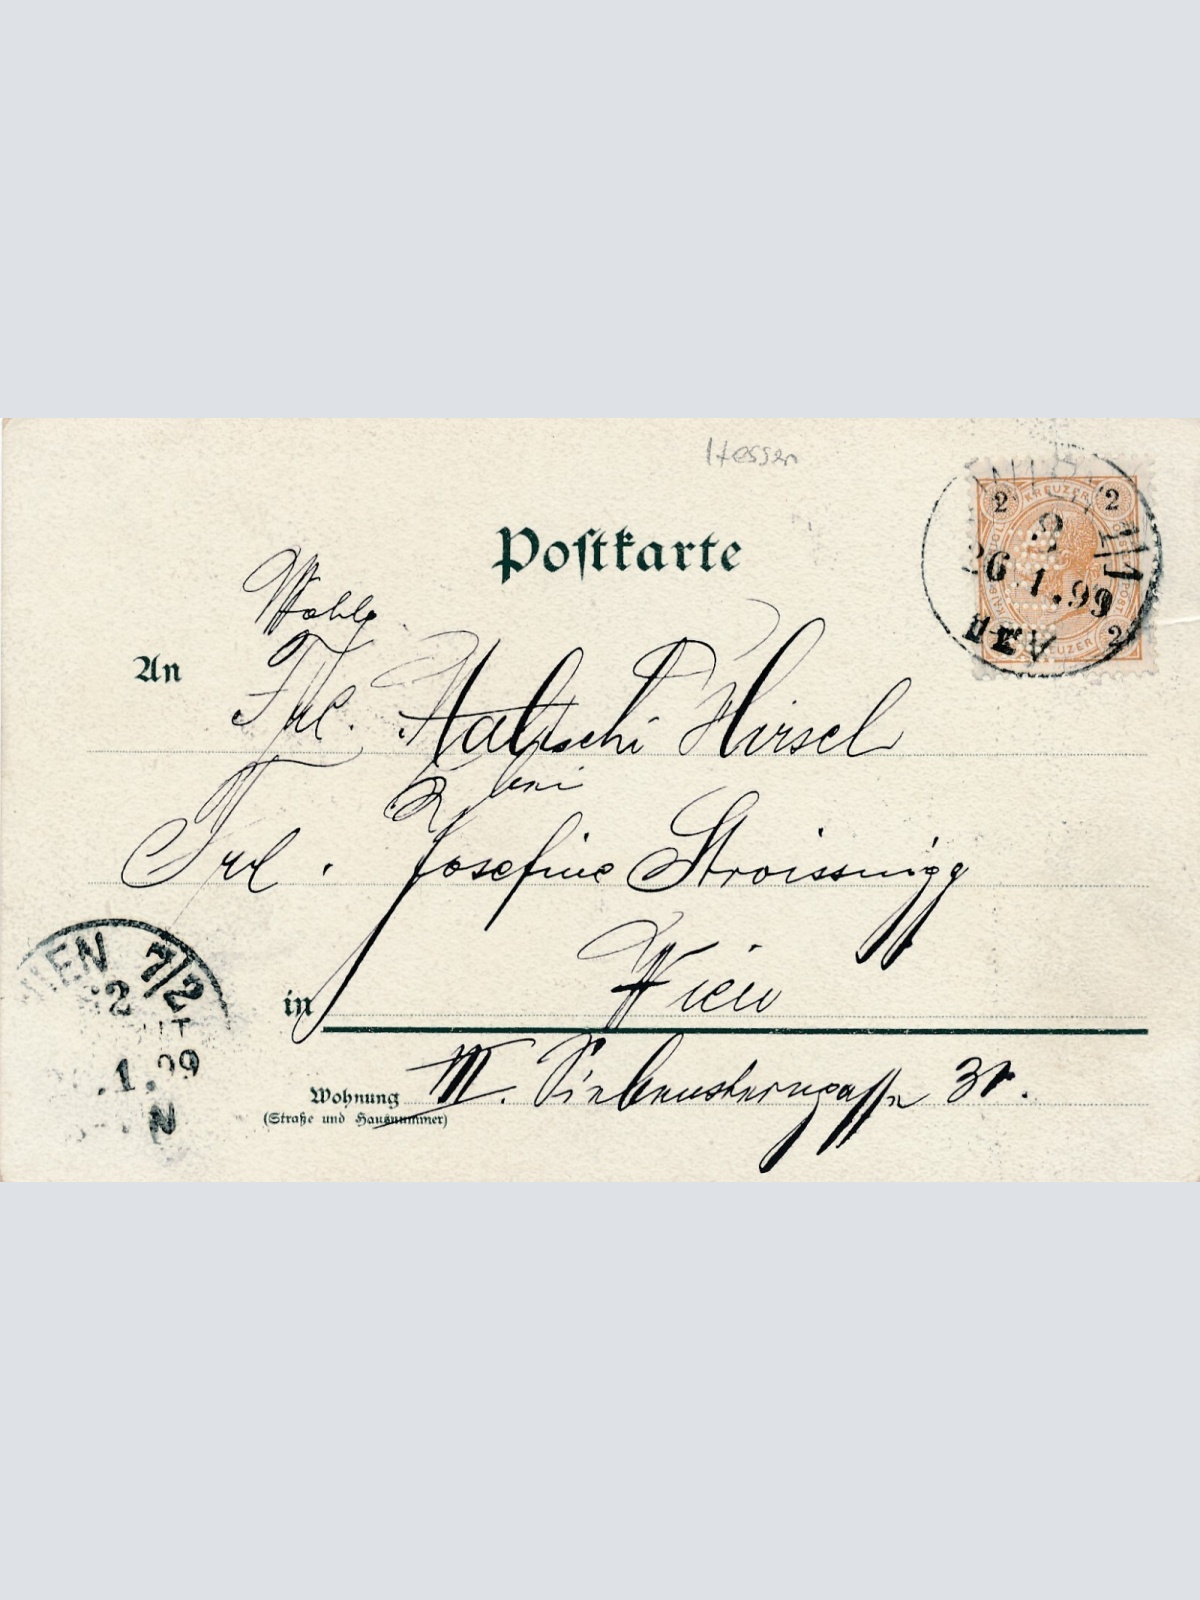 Hessen
Postkarte
2 KREUZER 2
2
26.1.99
1/1
KREUZER 2
Wohlg.
An Frl. Hirsel
bei
Frl. Josefine Stroissnigg
WIEN 7/2
2
in Wien
.1.99
N
Wohnung Siebensterngasse
(Straße und Hausnummer)